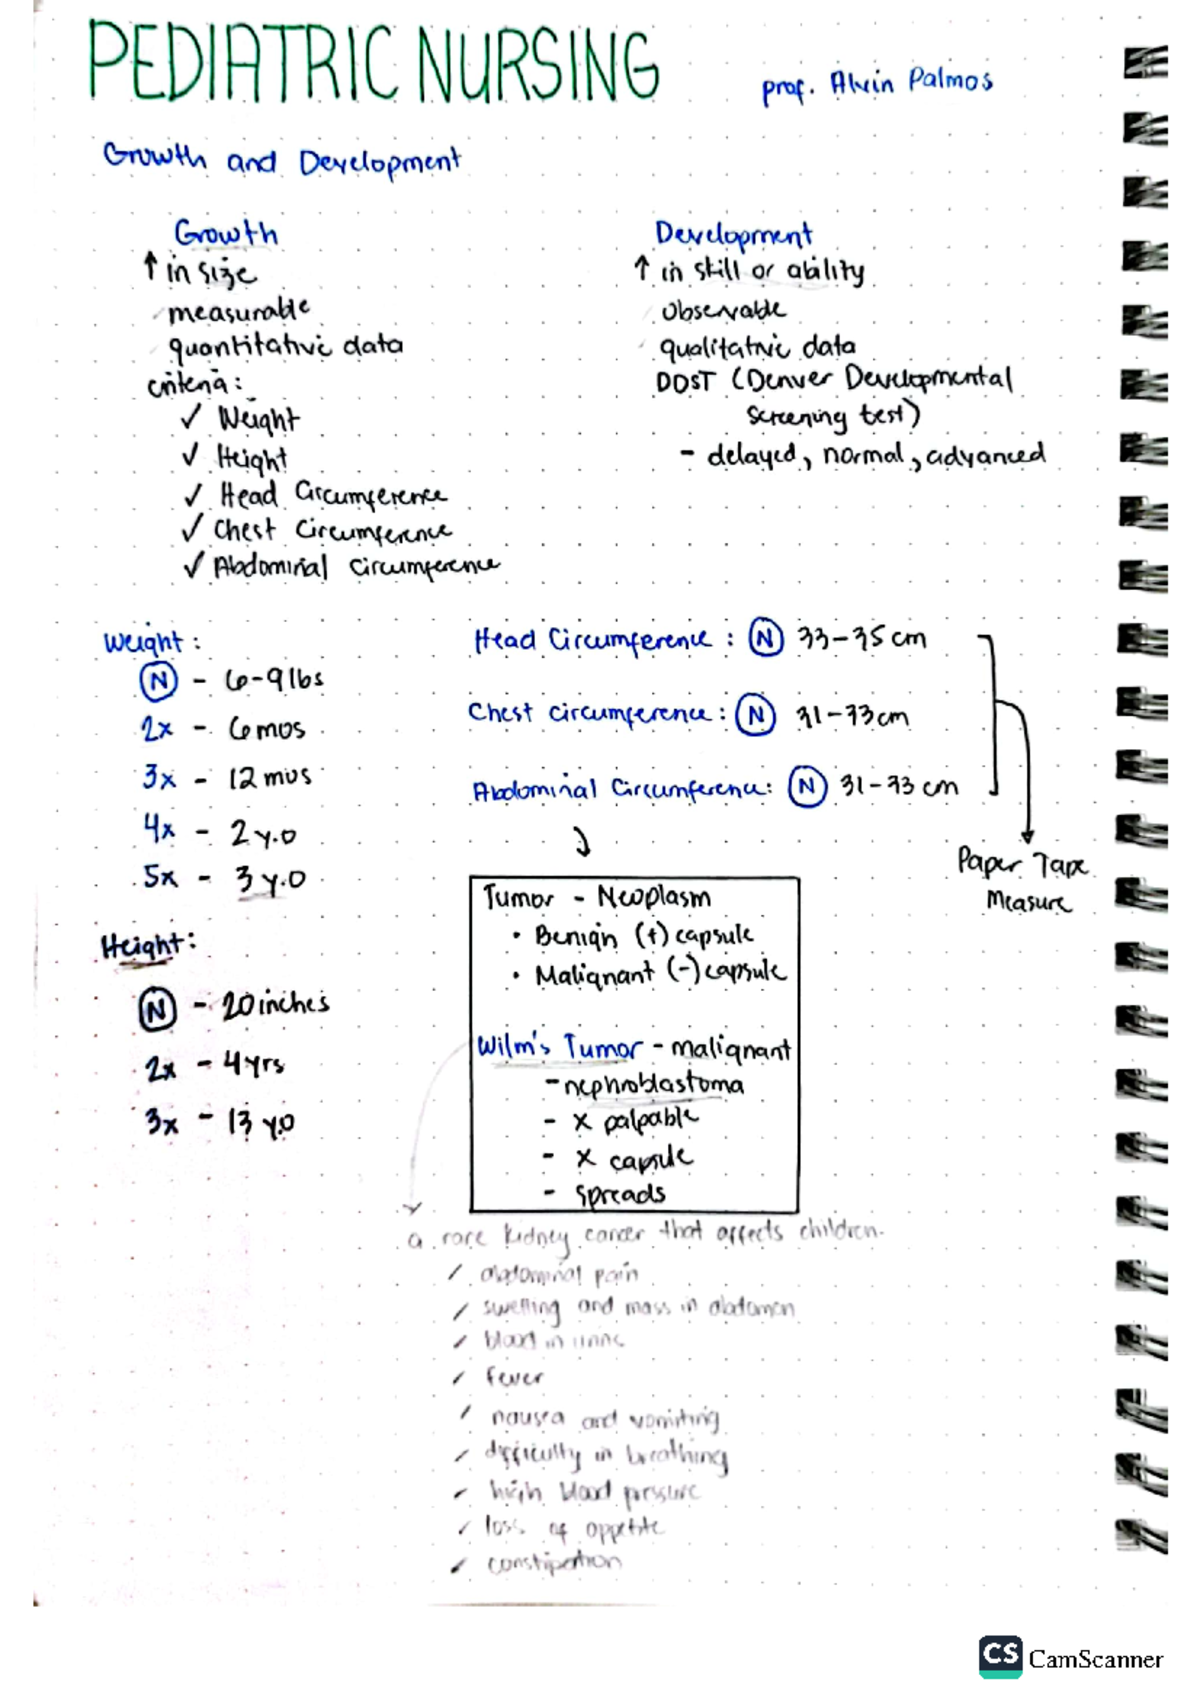 PEDIATRIC NURSING
prof. Alvin Palmos
Growth and Development
Growth
↑ in size
measurable
quantitative data
criteria:
✓ Weight
✓ Height
✓ Head Circumference
✓ Chest Circumference
✓ Abdominal Circumference
Development
↑ in skill or ability
observable
qualitative data
DDST (Denver Developmental
Screening test)
- delayed, normal, advanced
Weight:
N - 6-9 lbs
2x - 6 mos
3x - 12 mos
4x - 2 y.o
5x - 3 y.o
Height:
N - 20 inches
2x - 4 yrs
3x - 13 y.o
Head Circumference: N 33-35 cm
Chest Circumference: N 31-33 cm
Abdominal Circumference: N 31-33 cm
Paper Tape
Measure
Tumor - Neoplasm
• Benign (+) capsule
• Malignant (-) capsule
Wilm's Tumor - malignant
- nephroblastoma
- x palpable
- x capsule
- spreads
a rare kidney cancer that affects children.
/ abdominal pain
/ swelling and mass in abdomen
/ blood in urine
/ fever
/ nausea and vomiting
/ difficulty in breathing
/ high blood pressure
/ loss of appetite
/ constipation
CS CamScanner